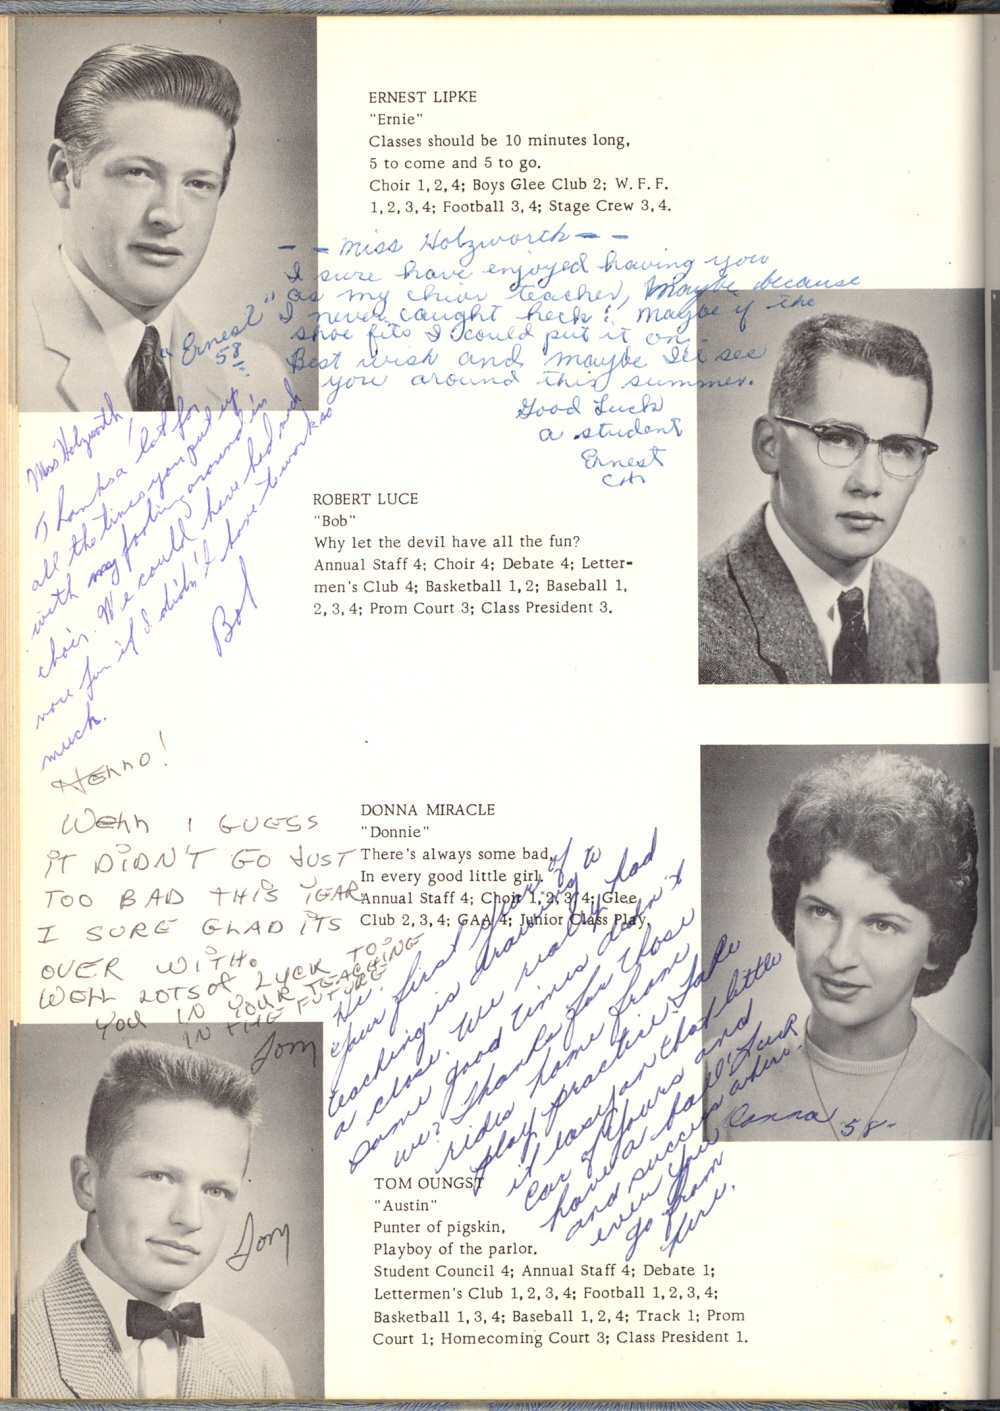 ERNEST LIPKE
"Ernie"
Classes should be 10 minutes long,
5 to come and 5 to go.
Choir 1, 2, 4; Boys Glee Club 2; W. F. F.
1, 2, 3, 4; Football 3, 4; Stage Crew 3, 4.
- - Miss Holzworth - -
I sure have enjoyed having you
as my choir teacher, Maybe because
I never caught heck! Maybe if the
shoe fits I could put it on.
Best wish and maybe I'll see
you around this summer.
Good Luck
a student
Ernest
"Ernest"
58
Miss Holzworth,
Thanks a lot for
all the times you put up
with my fooling around in
choir. We could have had
more fun if I didn't have to work so
much.
Bob
ROBERT LUCE
"Bob"
Why let the devil have all the fun?
Annual Staff 4; Choir 4; Debate 4; Letter-
men's Club 4; Basketball 1, 2; Baseball 1,
2, 3, 4; Prom Court 3; Class President 3.
Hello!
Well I GUESS
iT DiDN'T GO JUST
TOO BAD THiS YEAR
I SURE GLAD iTS
OVER WiTH.
WELL LOTS OF LUCK TO
YOU IN YOUR TEACHING
IN THE FUTURE
Tom
DONNA MIRACLE
"Donnie"
There's always some bad,
In every good little girl.
Annual Staff 4; Choir 1, 2, 3, 4; Glee
Club 2, 3, 4; GAA 4; Junior Class Play.
Hi!
Your first year of
teaching is drawing to
a close. We really had
some good times didn't
we? Thanks for those
rides home from
play practice. Take
it easy on that little
car of yours and
have a ball! Luck
and success
ever you
go from
here.
Donna 58-
TOM OUNGST
"Austin"
Punter of pigskin,
Playboy of the parlor.
Student Council 4; Annual Staff 4; Debate 1;
Lettermen's Club 1, 2, 3, 4; Football 1, 2, 3, 4;
Basketball 1, 3, 4; Baseball 1, 2, 4; Track 1; Prom
Court 1; Homecoming Court 3; Class President 1.
Tom